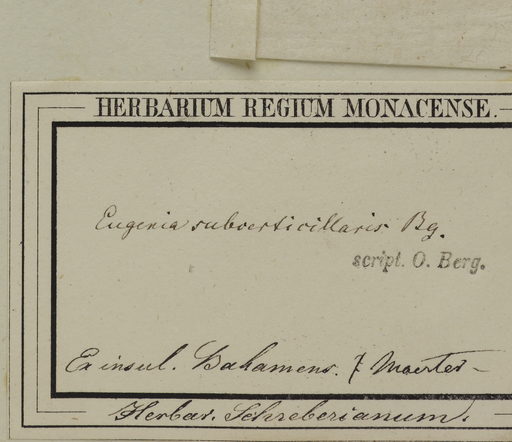 HERBARIUM REGIUM MONACENSE.
Eugenia subverticillaris Bg.
script. O. Berg.
Ex insul. Bahamens. Maerter-
Herbar. Schreberianum.